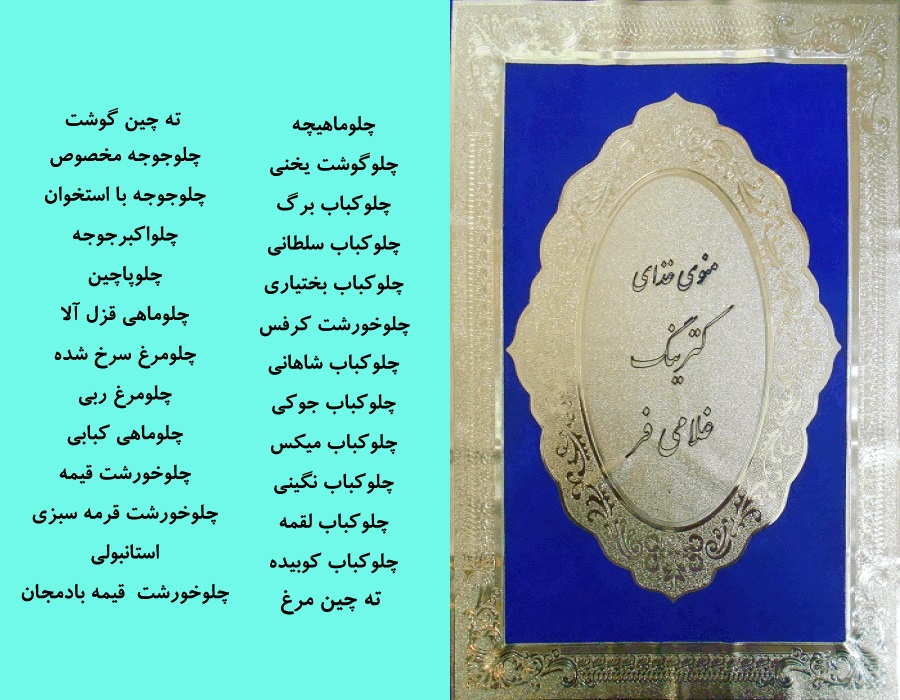 منوی غذای
کترینگ
غلامی فر
چلوماهیچه
چلوگوشت یخنی
چلوکباب برگ
چلوکباب سلطانی
چلوکباب بختیاری
چلوخورشت کرفس
چلوکباب شاهانی
چلوکباب جوکی
چلوکباب میکس
چلوکباب نگینی
چلوکباب لقمه
چلوکباب کوبیده
ته چین مرغ
ته چین گوشت
چلوجوجه مخصوص
چلوجوجه با استخوان
چلواکبرجوجه
چلوپاچین
چلوماهی قزل آلا
چلومرغ سرخ شده
چلومرغ ربی
چلوماهی کبابی
چلوخورشت قیمه
چلوخورشت قرمه سبزی
استانبولی
چلوخورشت قیمه بادمجان